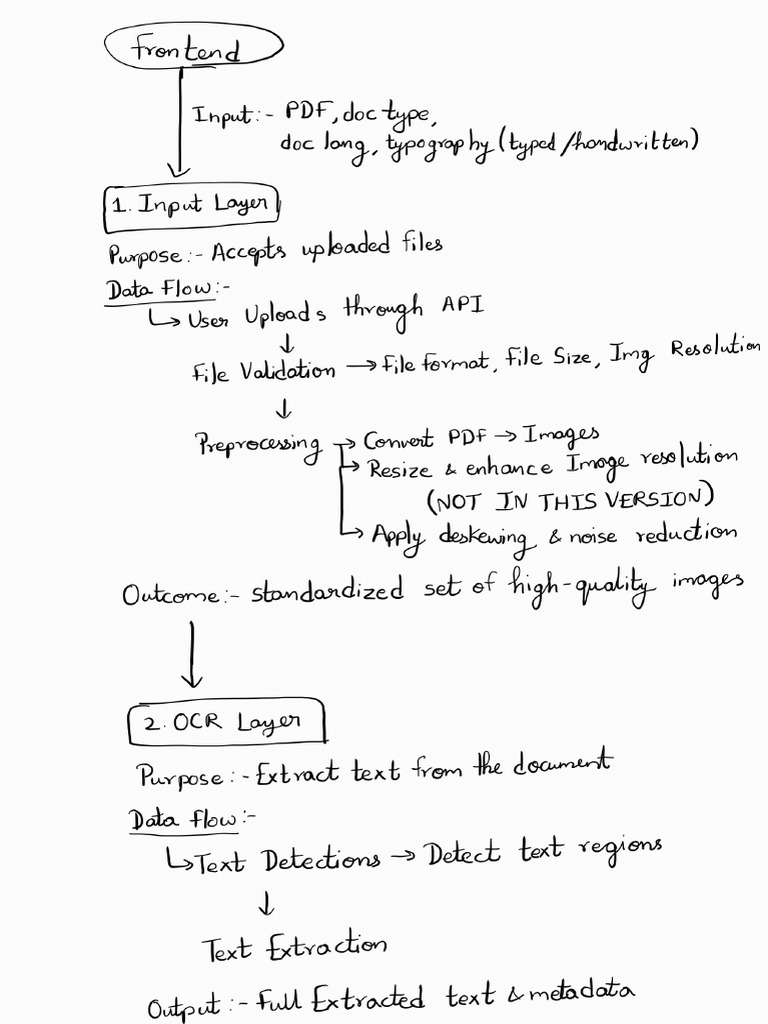 frontend
Input:- PDF, doc type,
doc lang, typography (typed/handwritten)
1. Input Layer
Purpose:- Accepts uploaded files
Data Flow:-
↳ User Uploads through API
↓
File Validation → File format, File Size, Img Resolution
↓
Preprocessing → Convert PDF → Images
→ Resize & enhance Image resolution
(NOT IN THIS VERSION)
→ Apply deskewing & noise reduction
Outcome:- standardized set of high-quality images
2. OCR Layer
Purpose:- Extract text from the document
Data flow:-
↳ Text Detections → Detect text regions
↓
Text Extraction
Output:- Full Extracted text & metadata